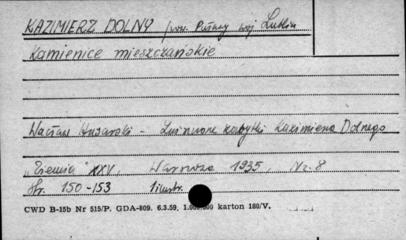 KAZIMIERZ DOLNY /pow. Puławy woj. Lublin
Kamienice mieszczańskie
Wacław Husarski - zabytki Kazimierza Dolnego
"Ziemia" XXV, Warszawa 1935, Nr. 8
Str. 150-153 ilustr.
CWD B-15b Nr 515/P. GDA-809. 6.3.59. karton 180/V.